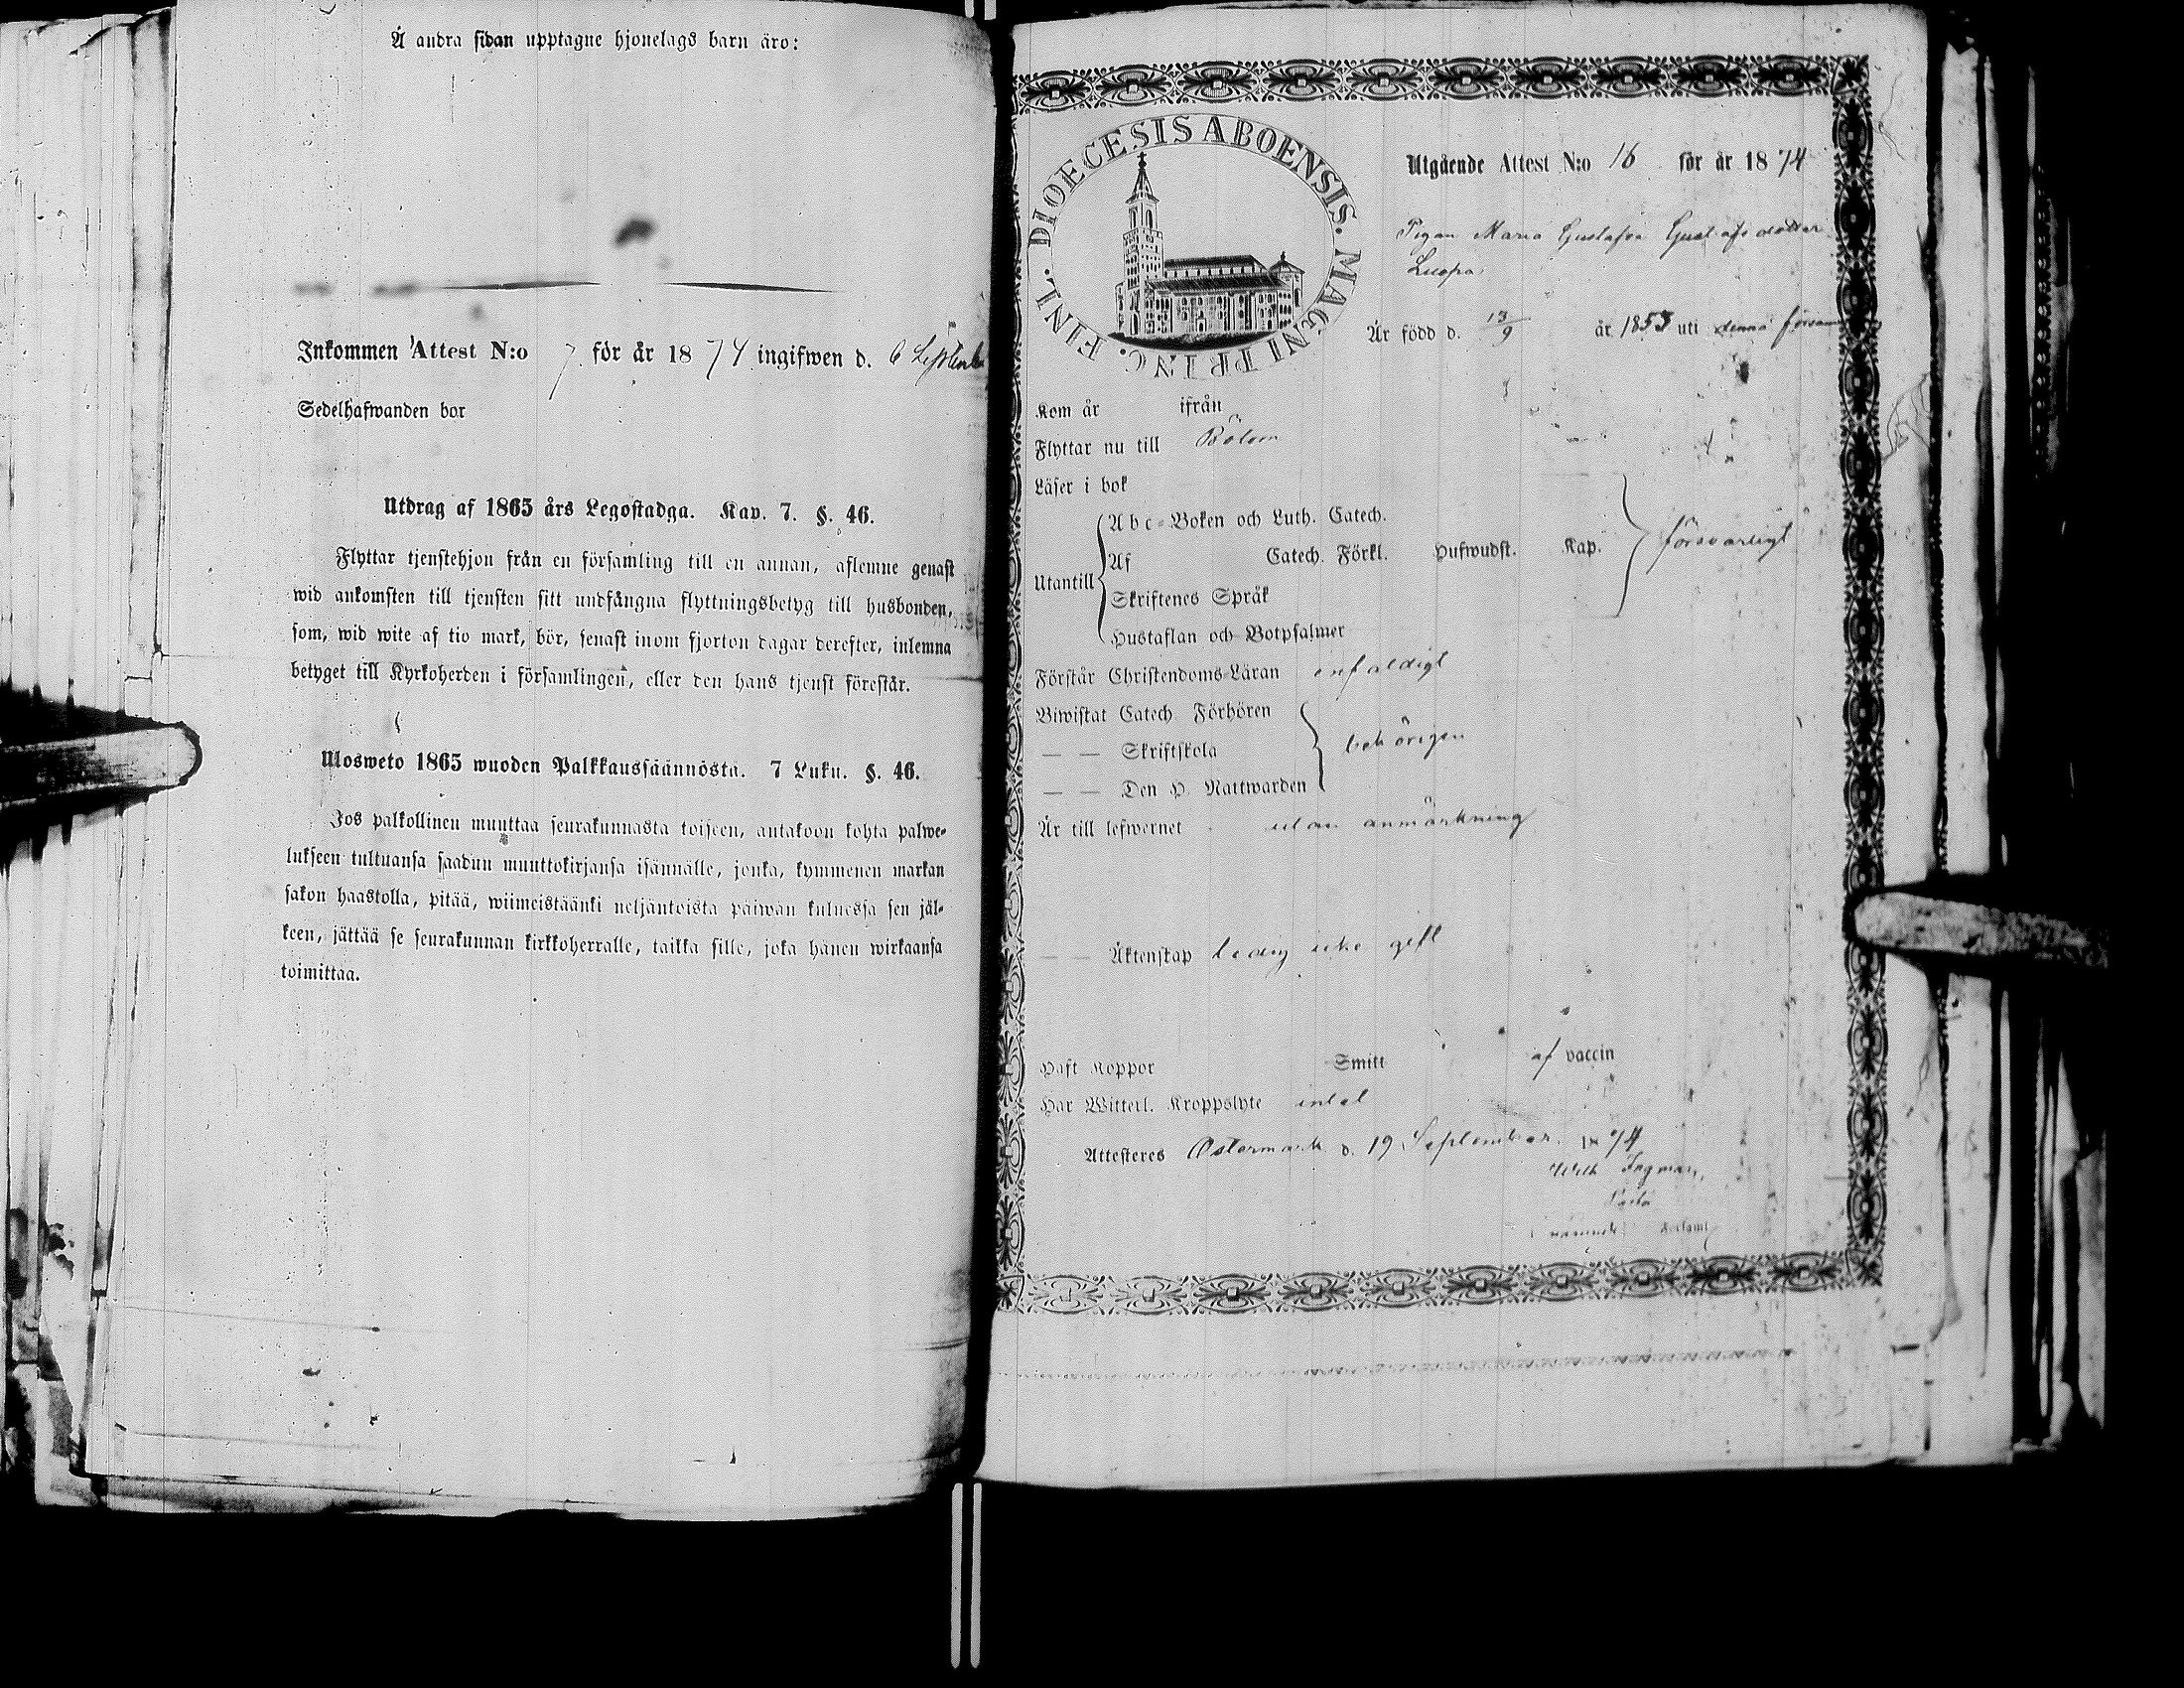 Å andra sidan upptagne hjonelags barn äro:
Inkommen Attest N:o 7. för år 1874 ingifwen d. 6 Septemb
Sedelhafwanden bor
Utdrag af 1865 års Legostadga. Kap. 7. §. 46.
Flyttar tjenstehjon från en församling till en annan, aflemne genast
wid ankomsten till tjensten sitt undfångna flyttningsbetyg till husbonden,
som, wid wite af tio mark, bör, senast inom fjorton dagar derefter, inlemna
betyget till Kyrkoherden i församlingen, eller den hans tjenst förestår.
Ulosweto 1865 wuoden Palkkaussäännöstä. 7 Luku. §. 46.
Jos palkollinen muuttaa seurakunnasta toiseen, antakoon kohta palwe-
lukseen tultuansa saadun muuttokirjansa isännälle, jonka, kymmenen markan
sakon haastolla, pitää, wiimeistäänki neljäntoista päiwän kuluessa sen jäl-
keen, jättää se seurakunnan kirkkoherralle, taikka sille, joka hänen wirkaansa
toimittaa.
DIOECESIS ABOENSIS. MAGNI PRINC. FINL.
Utgående Attest N:o 16 för år 1874
Pigan Maria Gustafva Gustafsdotter
Luopa
Är född d. 13/9 år 1853 uti denna försam
Kom år ifrån
Flyttar nu till Bötom
Läser i bok
Abc-Boken och Luth. Catech.
Af Catech. Förkl. Hufwudst. Kap. försvarligt
Utantill
Skriftenes Språk
Hustaflan och Botpsalmer
Förstår Christendoms-Läran enfaldigt
Biwistat Catech. Förhören
— — Skriftskola behörigen
— — Den H. Nattwarden
Är till lefwernet utan anmärkning
— — Äktenskap ledig icke gift
Haft Koppor Smitt af vaccin
Har Witterl. Kroppslyte intet
Attesteres Östermark d. 19 September 1874
Wilh Ingman,